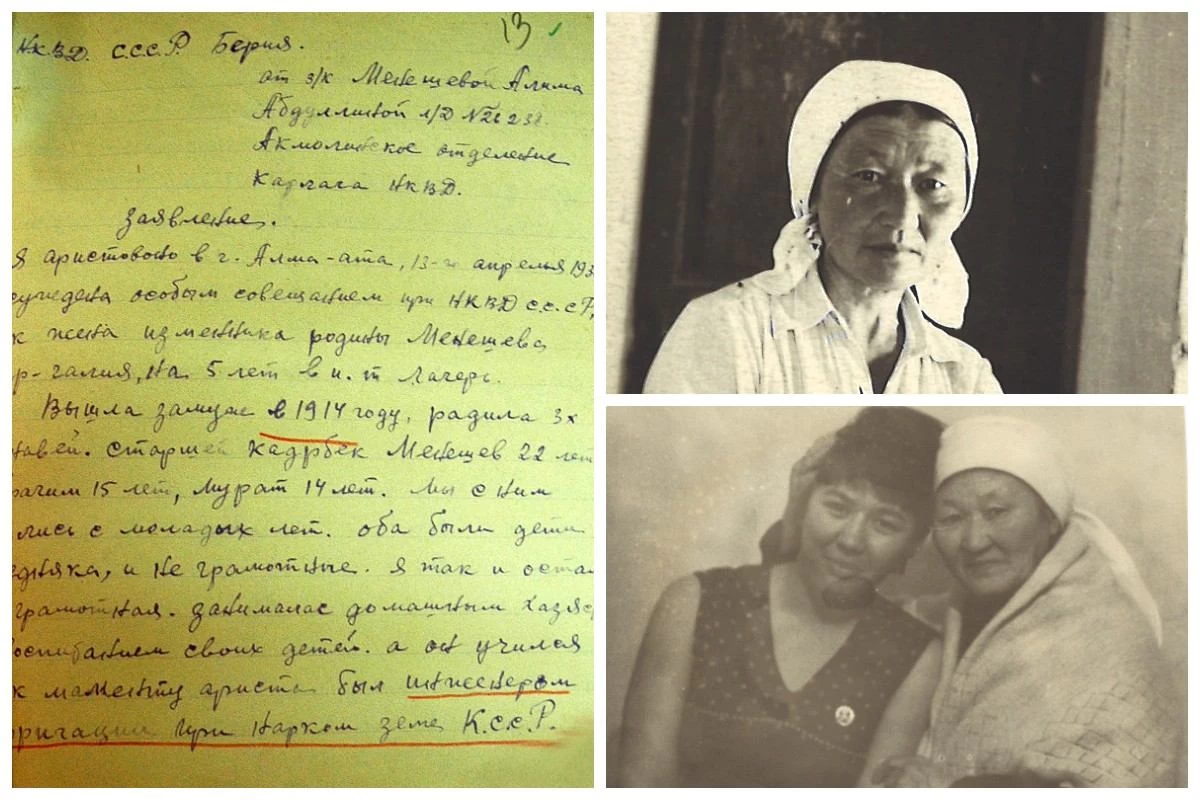 13
Н.К.В.Д. С.С.С.Р. Берия.
от з/к Менешевой Алима
Абдуллиной л/д №26238.
Акмолинское отделение
Карлага НКВД.
Заявление.
Я аристовано в г. Алма-ата, 13-го апрелья 193
суждена особым совещанием при НКВД С.С.С.Р,
к жена изменника родины Менешева
р-галия, на 5 лет в и.т лагерь.
Вышла замуж в 1914 году, радила 3х
навей. старшей Кадрбек Менешев 22 лет
рачим 15 лет, Мурат 14 лет. мы с ним
лись с моладых лет. оба были дети
едняка, и не грамотные. я так и оста
грамотная. занималас домашным хазяс
оспитанием своих детей. а он учился
к маменту ариста был инженером
рригации при Нарком земе К.С.С.Р.